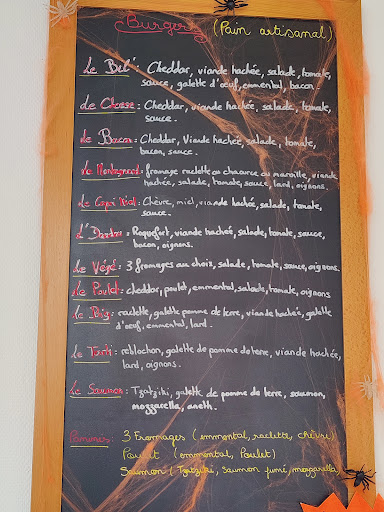 Burgers (Pain artisanal)
Le Bel' : Cheddar, viande hachée, salade, tomate,
sauce, galette d'œuf, emmental, bacon.
Le Cheese : Cheddar, viande hachée, salade, tomate,
sauce.
Le Bacon : Cheddar, Viande hachée, salade, tomate,
bacon, sauce.
Le Montagnard : fromage raclette ou chaource ou maroille, viande
hachée, salade, tomate, sauce, lard, oignons.
Le Capri Miel : Chèvre, miel, viande hachée, salade, tomate,
sauce.
Roquefort, viande hachée, salade, tomate, sauce,
bacon, oignons.
Le Végé : 3 fromages au choix, salade, tomate, sauce, oignons.
Le Poulet : cheddar, poulet, emmental, salade, tomate, oignons
Le Big : raclette, galette pomme de terre, viande hachée, galette
d'oeuf, emmental, lard.
Le Tarti : reblochon, galette de pomme de terre, viande hachée,
lard, oignons.
Le Saumon : Tzatziki, galette de pomme de terre, saumon,
mozzarella, aneth.
Paninis : 3 Fromages (emmental, raclette, chèvre)
Poulet (emmental, Poulet)
Saumon (Tzatziki, Saumon fumé, mozzarella